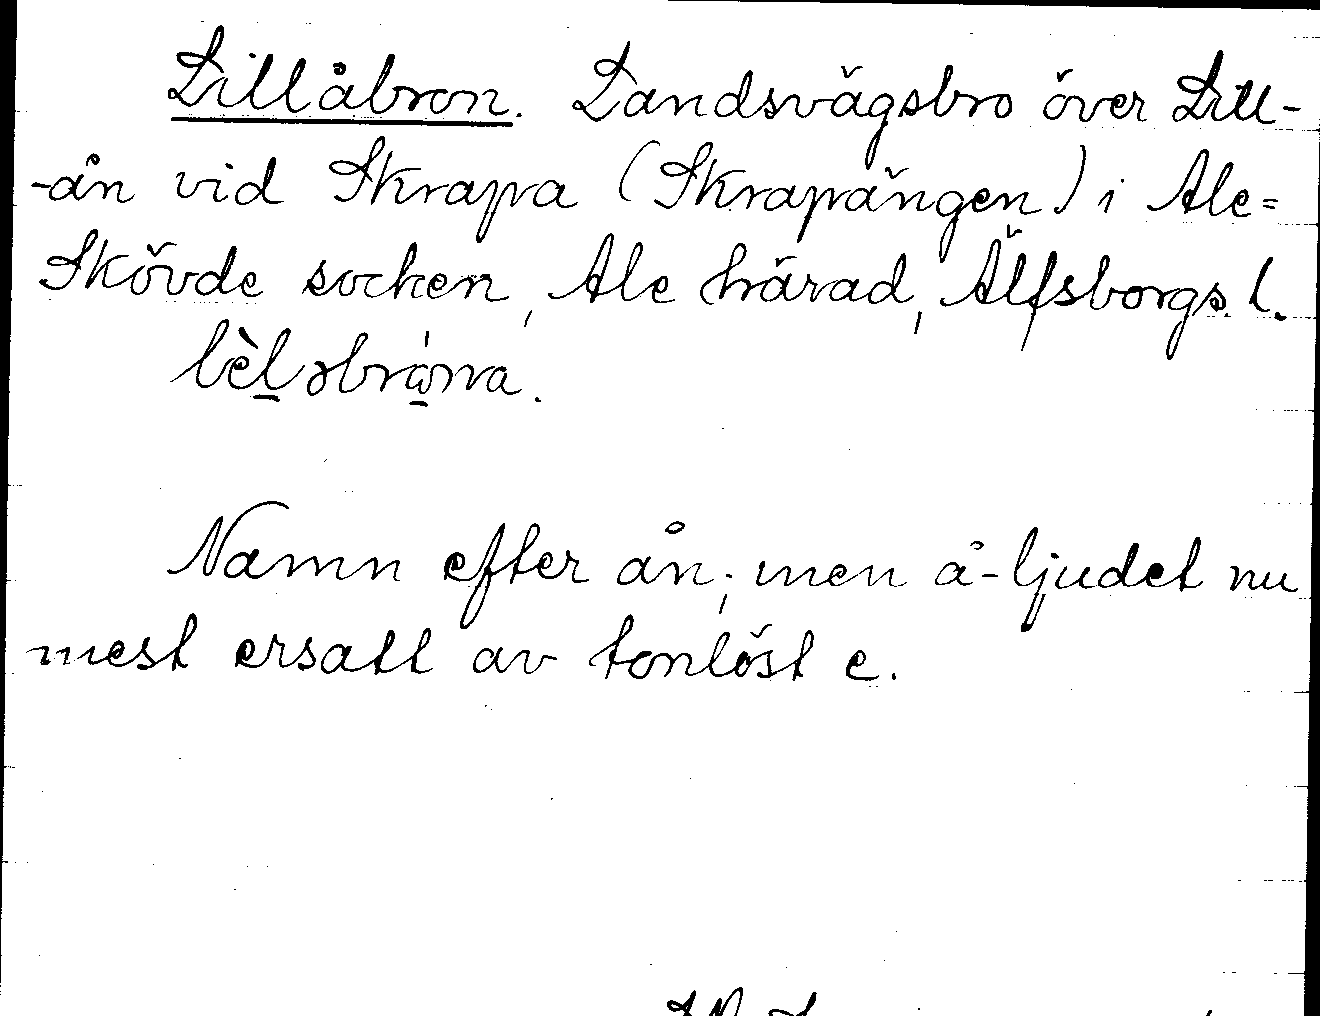 Lillåbron. Landsvägsbro över Lill-
-ån vid Skrapa (Skrapängen) i Ale=
Skövde socken, Ale härad, Älfsborgs l.
lèl̠əbrώ̠na.
Namn efter ån; men å-ljudet nu
mest ersatt av tonlöst e.